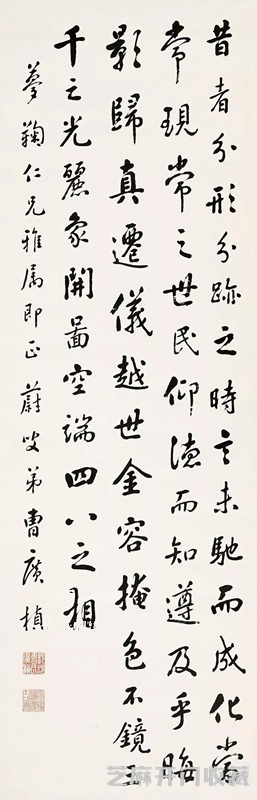 昔者分形分跡之時言未馳而成化當
常現常之世民仰德而知遵及乎晦
影歸真遷儀越世金容掩色不鏡三
千之光麗象開圖空端四八之相
夢鞠仁兄雅属即正 蔚叟弟曹廣楨
芝麻开门收藏